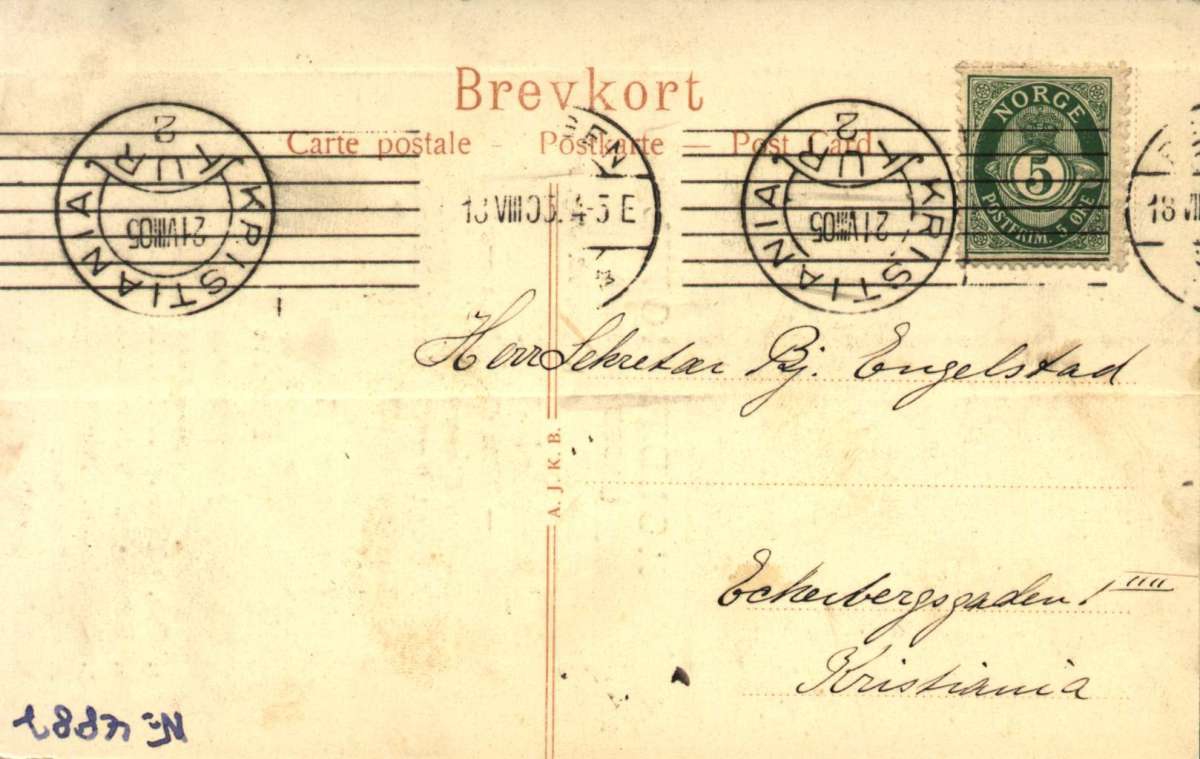 Brevkort
Carte postale - Postkarte — Post Card
NORGE
5
POSTFRIM. 5 ØRE
KRISTIANIA
21 VIII 05
TUR
2
KRISTIANIA
21 VIII 05
TUR
2
18 VIII 05. 4-5 E
18 VII
Herr Sekretær Bj. Engelstad
A. J. K. B.
Eckersbergsgaden 1""
Kristiania